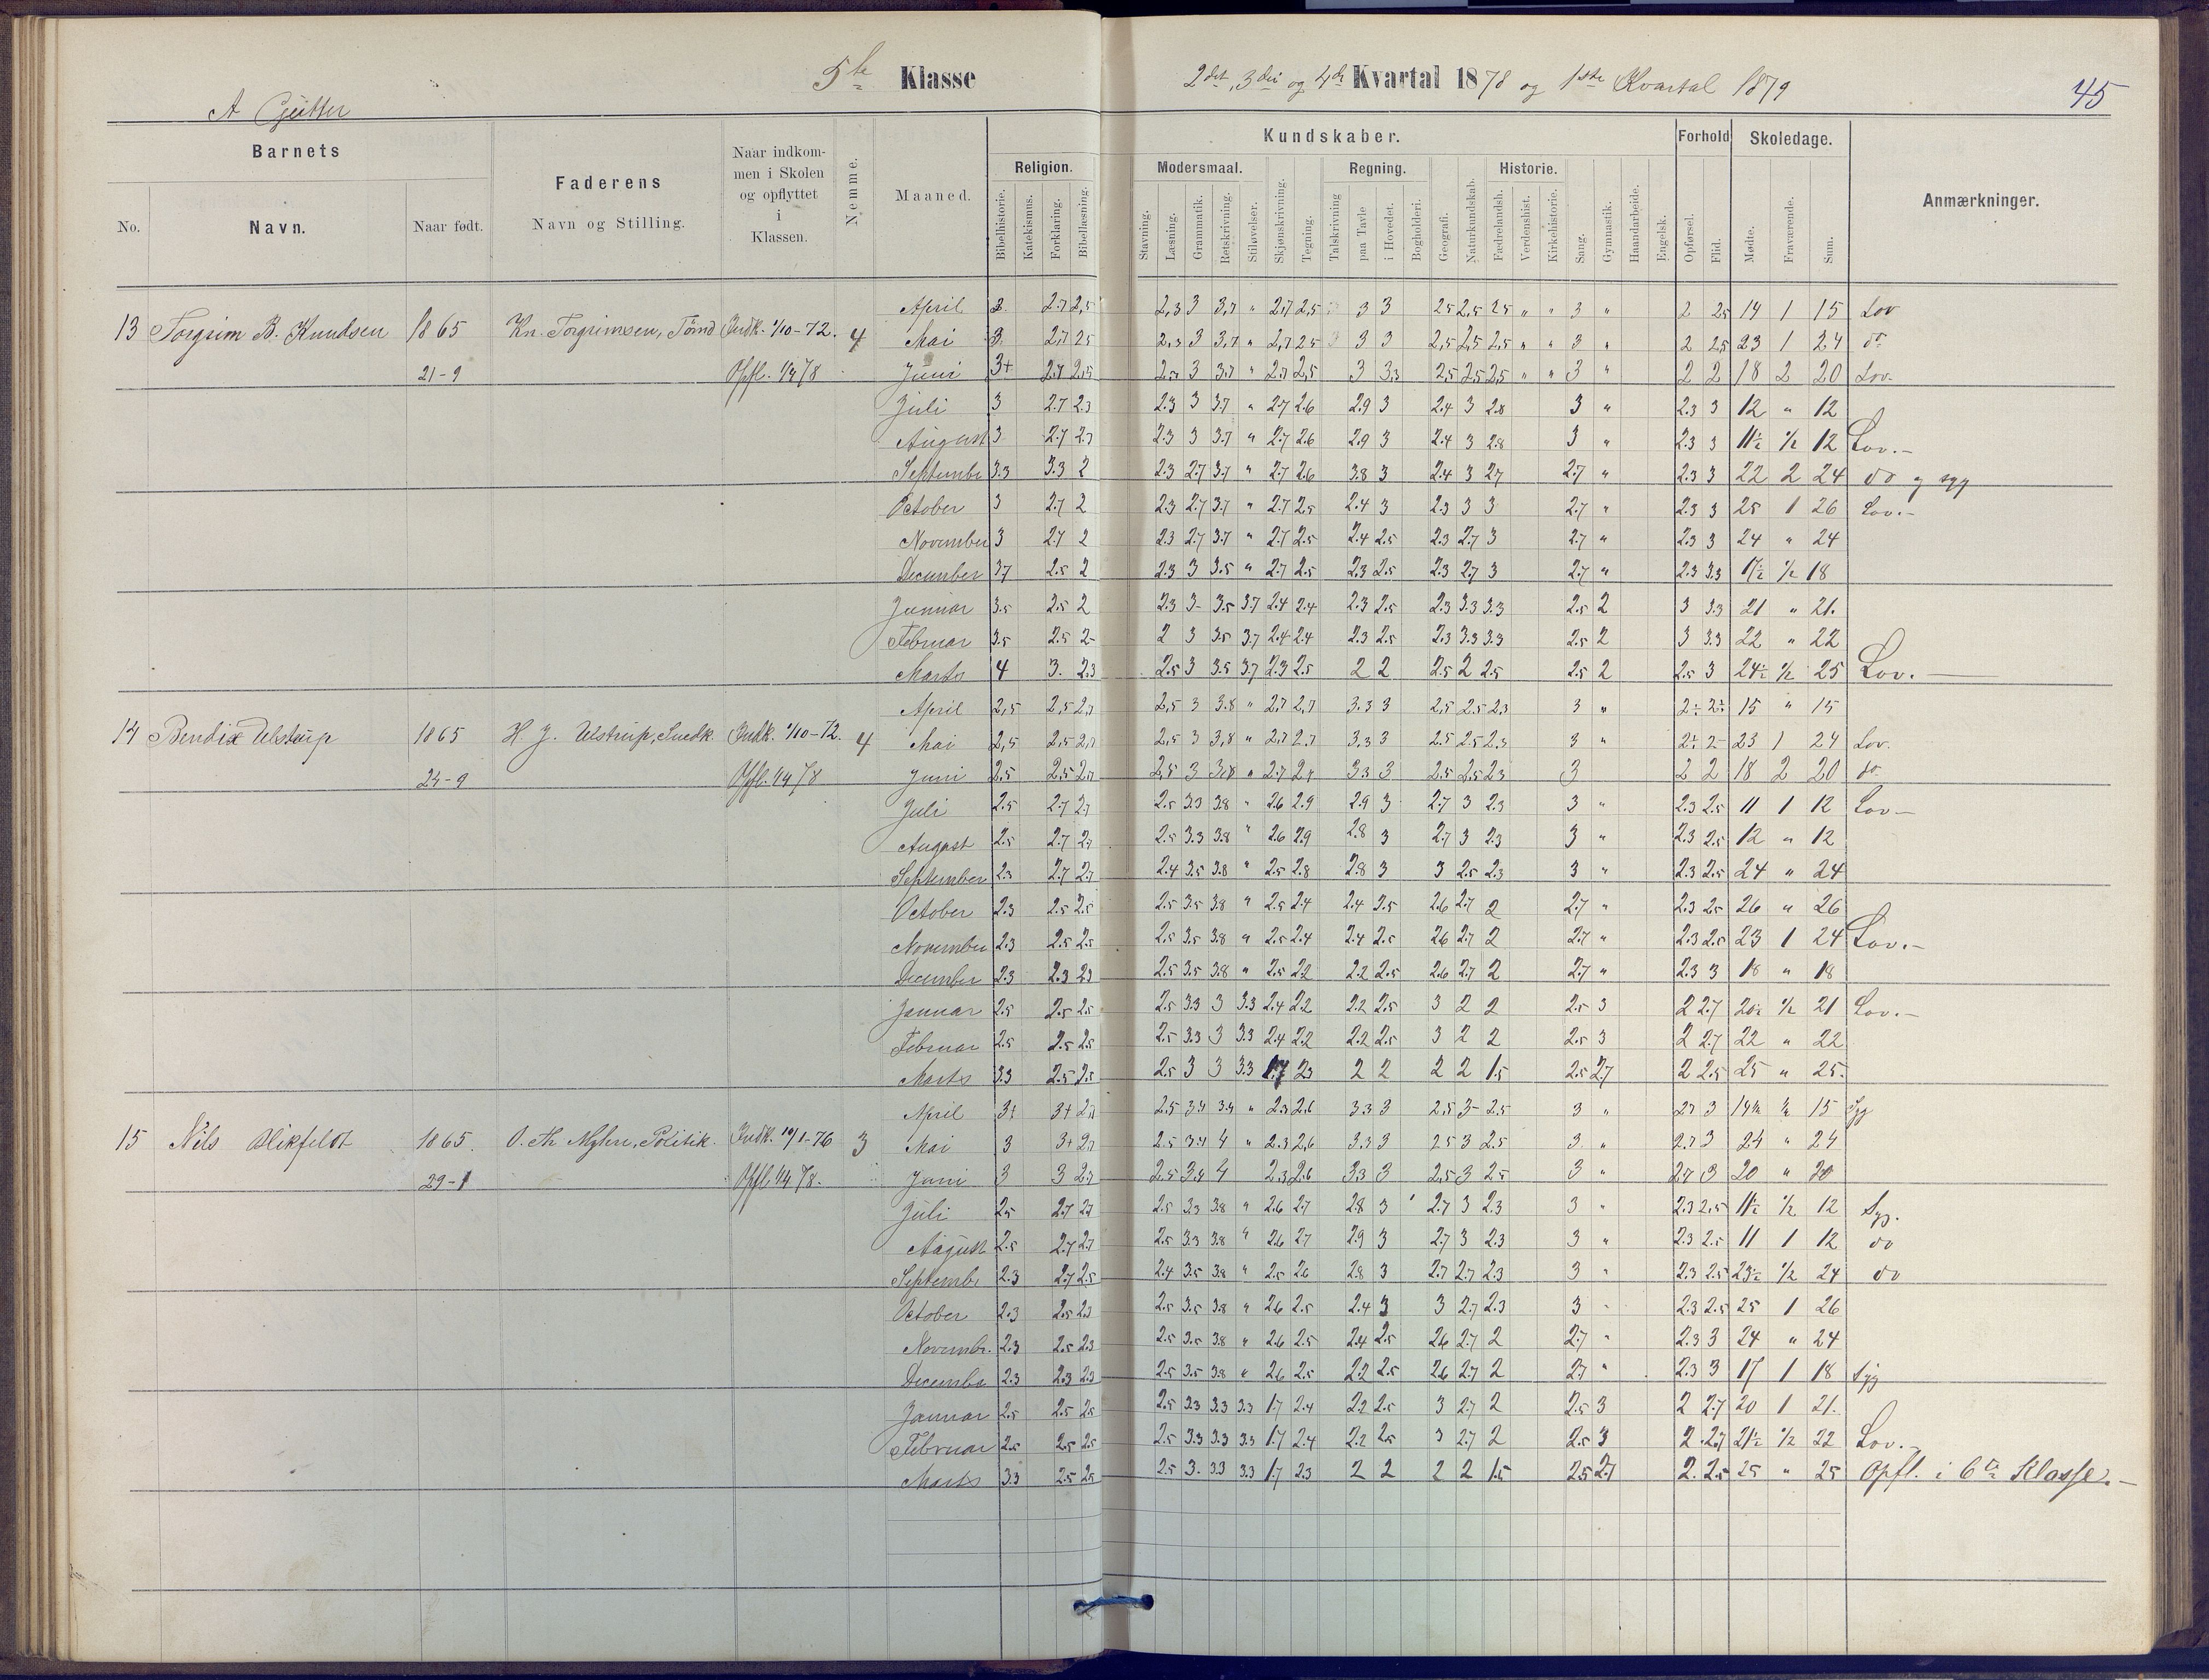 5te Klasse
2det, 3die og 4de Kvartal 1878 og 1ste Kvartal 1879
45
A
Barnets
Faderens
Naar indkom-
men i Skolen
og opflyttet
i
Klassen.
Nemme.
Maaned.
Kundskaber.
Forhold
Skoledage.
Anmærkninger.
Religion.
Modersmaal.
Regning.
Historie.
No.
Navn.
Naar født.
Navn og Stilling.
Bibelhistorie.
Katekismus.
Forklaring.
Bibellæsning.
Stavning.
Læsning.
Grammatik.
Retskrivning.
Stiløvelser.
Skjønskrivning.
Tegning.
Talskrivning
paa Tavle
i Hovedet.
Bogholderi.
Geografi.
Naturkundskab.
Fædrelandsh.
Verdenshist.
Kirkehistorie.
Sang.
Gymnastik.
Haandarbeide.
Engelsk.
Opførsel.
Flid.
Mødte.
Fraværende.
Sum.
13 Torgrim B. Knudsen 1865 Kn. Torgrimsen, Tømd Indk. 1/10-72. 4
21-9 Opfl. 1/4 78
April 3 2.7 2,5 2,3 3 3,7 " 2,7 2,5 3 3 2,5 2,5 2,5 " " 3 " 2 2,5 14 1 15 Lov
Mai 3 2,7 2,5 2,3 3 3,7 " 2,7 2,5 3 3 2,5 2,5 2,5 " " 3 " 2 2,5 23 1 24 do
Juni 3+ 2.7 2,5 3 3.7 " 2.7 2,5 3 3,3 2,5 2,5 2,5 " " 3 " 2 2 18 2 20 Lov.
Juli 3 2.7 2.3 2.3 3 3.7 " 2.7 2.6 2.9 3 2.4 3 2.8 3 " 2.3 3 12 " 12
August 3 2.7 2.7 2.3 3 3.7 " 2.7 2.6 2.9 3 2.4 3 2.8 3 " 2.3 3 11½ ½ 12 Lov.-
Septembe 3.3 3.3 2 2.3 2.7 3.7 " 2.7 2.6 3.8 3 2.4 3 2.7 2.7 " 2.3 3 22 2 24 do og syg
October 3 2.7 2 2.3 2.7 3.7 " 2.7 2.5 2.4 3 2.3 3 3 2.7 " 2.3 3 25 1 26 Lov.-
November 3 2.7 2 2.3 2.7 3.7 " 2.7 2.5 2.4 2.5 2.3 2.7 3 2.7 " 2.3 3 24 " 24
December 3.7 2.5 2 2.3 3 3.5 " 2.7 2.5 2.3 2.5 2.3 2.7 3 2.7 " 2.3 3.3 17½ ½ 18
Januar 3.5 2.5 2 2.3 3- 3.5 3.7 2.4 2.4 2.3 2.5 2.3 3.3 3.3 2.5 2 3 3.3 21 " 21.
Februar 3.5 2.5 2- 2 3 3.5 3.7 2.4 2.4 2.3 2.5 2.3 3.3 3.3 2.5 2 3 3.3 22 " 22
Marts 4 3. 2.3 2.5 3 3.5 3.7 2.3 2.5 2 2 2.5 2 2.5 2.5 2 2.5 3 24½ ½ 25 Lov.-
14 Bendix Ulstrup 1865 H J. Ulstrup, Snedk. Indk. 1/10-72. 4
24-9 Opfl. 1/4 78
April 2,5 2,5 2,7 2,5 3 3.8 " 2,7 2,7 3.3 3 2,5 2.5 2.3 3 " 2÷ 2÷ 15 " 15
Mai 2,5 2,5 2,7 2,5 3 3,8 " 2.7 2.7 3,3 3 2.5 2.5 2.3 3 " 2÷ 2- 23 1 24 Lov.
Juni 2.5 2,5 2,7 2,5 3 3,8 " 2.7 2.7 3.3 3 2.5 2,5 2.3 3 2 2 18 2 20 do
Juli 2.5 2.7 2.7 2.5 3.3 3.8 " 2.6 2.9 2.9 3 2.7 3 2.3 3 " 2.3 2.5 11 1 12 Lov-
August 2.5 2.7 2.7 2.5 3.3 3.8 " 2.6 2.9 2.8 3 2.7 3 2.3 3 " 2.3 2.5 12 " 12
September 2.3 2.7 2.7 2.4 3.5 3.8 " 2.5 2.8 2.8 3 3 2.5 2.3 3 " 2.3 2.5 24 " 24
October 2.3 2.5 2.5 2.5 3.5 3.8 " 2.5 2.4 2.4 2.5 2.6 2.7 2 2.7 " 2.3 2.5 26 " 26
November 2.3 2.5 2.5 2.5 3.5 3.8 " 2.5 2.4 2.4 2.5 2.6 2.7 2 2.7 " 2.3 2.5 23 1 24 Lov.-
December 2.3 2.3 2.3 2.5 3.5 3.8 " 2.5 2.2 2.2 2.5 2.6 2.7 2 2.7 " 2.3 3 18 " 18
Januar 2.5 2.5 2.5 2.5 3.3 3 3.3 2.4 2.2 2.2 2.5 3 2 2 2.5 3 2 2.7 20½ ½ 21 Lov.-
Februar 2.5 2.5 2.5 2.5 3.3 3 3.3 2.4 2.2 2.2 2.5 3 2 2 2.5 3 2 2.7 22 " 22
Marts 3.3 2.5 2.5 2.5 3 3 3.3 1.7 2.3 2 2 2 2 1.5 2.5 2.7 2 2.5 25 " 25.
15 Nils Blikfeldt 1865. O. Th Myhre, Politik. Indk. 10/1-76 3
29-1 Opfl. 1/4 78.
April 3+ 3+ 2,7 2.5 3.4 3.4 " 2.3 2.6 3.3 3 2,5 3- 2.5 3 " 2.7 3 14½ ½ 15 Syg
Mai 3 3+ 2.7 2.5 3.4 4 " 2.3 2,6 3.3 3 2.5 3 2.5 3 " 2.7 3 24 " 24
Juni 3 3 2.7 2,5 3,4 4 2.3 2.6 3.3 3 2,5 3 2.5 3 " 2.7 3 20 " 20
Juli 2.5 2.7 2.7 2.5 3.3 3.8 " 2.6 2.7 2.8 3 2.7 3 2.3 3 " 2.3 2.5 11½ ½ 12 Syg.
August 2.5 2.7 2.7 2.5 3.3 3.8 " 2.6 2.7 2.9 3 2.7 3 2.3 3 " 2.3 2.5 11 1 12 do
Septembe 2.3 2.7 2.5 2.4 3.5 3.8 " 2.5 2.6 2.8 3 2.7 2.7 2.3 3 " 2.3 2.5 23½ ½ 24 do
October 2.3 2.5 2.3 2.5 3.5 3.8 " 2.6 2.5 2.4 3 3 2.7 2.3 3 " 2.3 2.5 25 1 26
Novembr. 2.3 2.5 2.3 2.5 3.5 3.8 " 2.6 2.5 2.4 2.5 2.6 2.7 2 2.7 " 2.3 3 24 " 24
Decembe 2.3 2.3 2.3 2.5 3.5 3.8 " 2.6 2.5 2.2 2.5 2.6 2.7 2 2.7 " 2.3 3 17 1 18 Syg
Januar 2.5 2.5 2.5 2.5 3.3 3.3 3.3 1.7 2.4 2.2 2.5 3 2.7 2 2.5 3 2 2.7 20 1 21.
Februar 2.5 2.5 2.5 2.5 3.3 3.3 3.3 1.7 2.4 2.2 2.5 3 2.7 2 2.5 3 2 2.7 21½ ½ 22 Lov.-
Marts 3.3 2.5 2.5 2.5 3. 3.3 3.3 1.7 2.3 2 2 2 2 1.5 2.5 2.7 2. 2.5 25 " 25 Opfl. i 6te Klasse.-